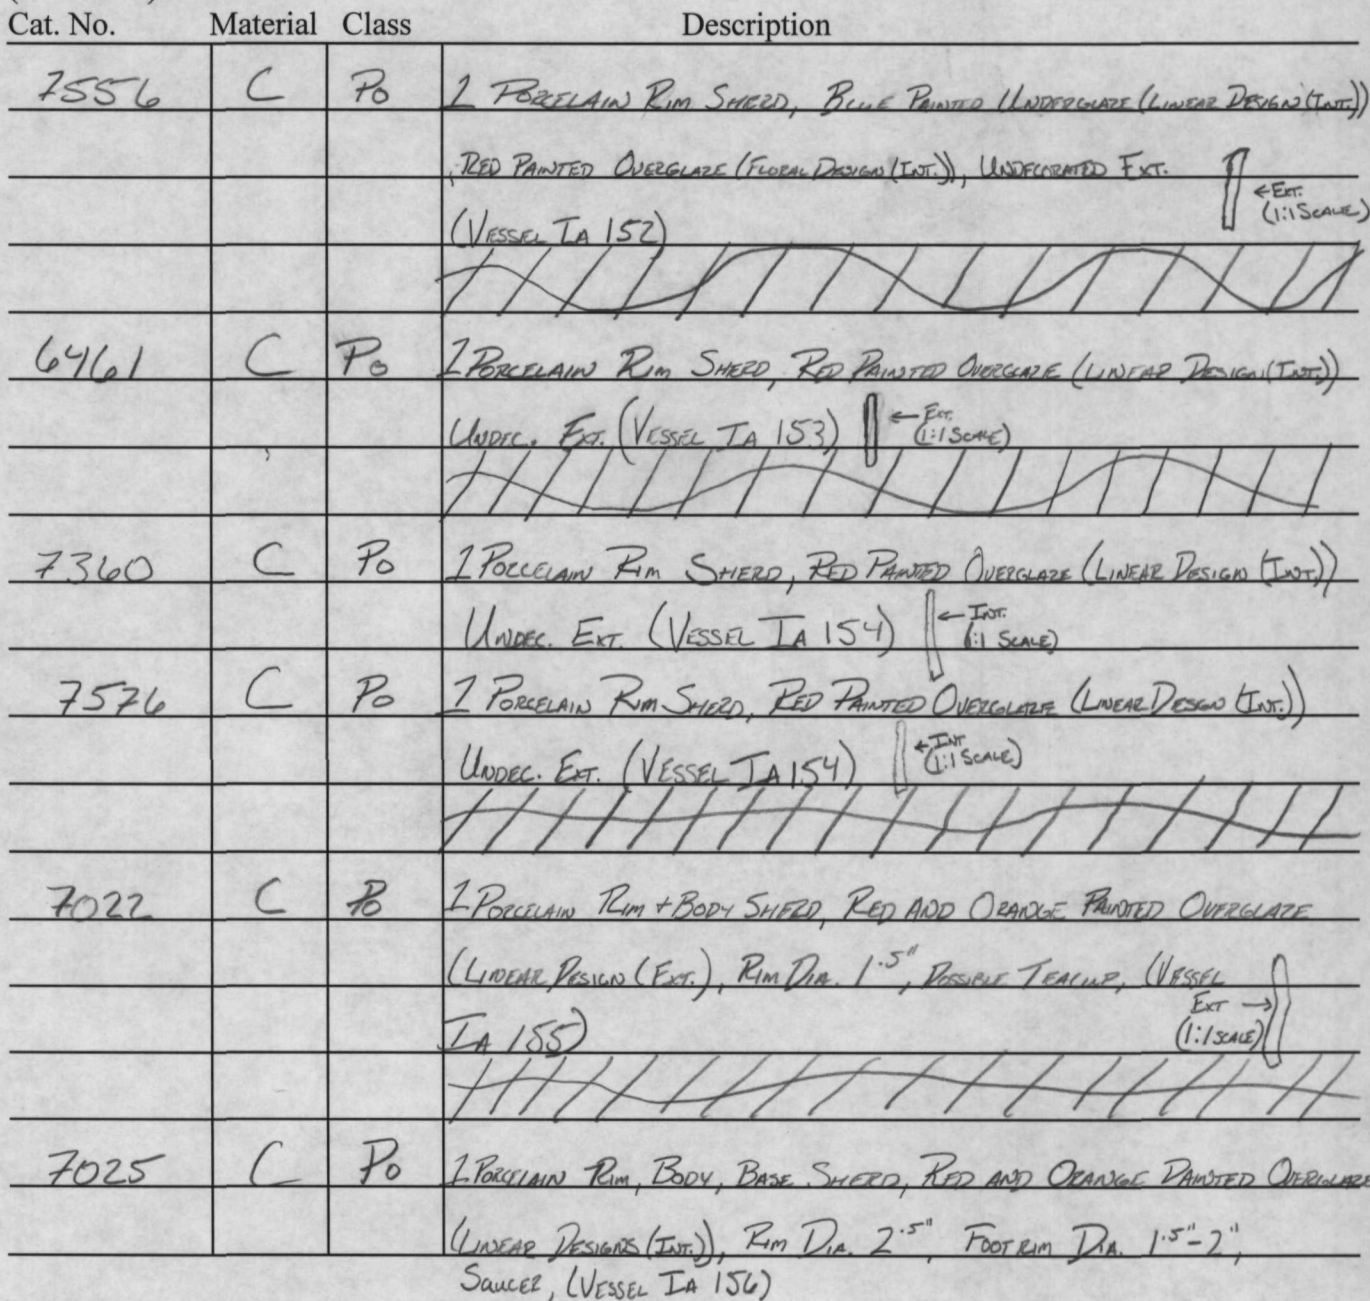 Cat. No. Material Class Description
7556 C Po 1 PORCELAIN RIM SHERD, BLUE PAINTED UNDERGLAZE (LINEAR DESIGN (INT.))
, RED PAINTED OVERGLAZE (FLORAL DESIGN (INT.)), UNDECORATED EXT.
←EXT.
(1:1 SCALE)
(VESSEL IA 152)
6461 C Po 1 PORCELAIN RIM SHERD, RED PAINTED OVERGLAZE (LINEAR DESIGN (INT.))
UNDEC. EXT. (VESSEL IA 153) ←EXT.
(1:1 SCALE)
7360 C Po 1 PORCELAIN RIM SHERD, RED PAINTED OVERGLAZE (LINEAR DESIGN (INT.))
UNDEC. EXT. (VESSEL IA 154) ←INT.
(1:1 SCALE)
7576 C Po 1 PORCELAIN RIM SHERD, RED PAINTED OVERGLAZE (LINEAR DESIGN (INT.))
UNDEC. EXT. (VESSEL IA 154) ←INT
(1:1 SCALE)
7022 C Po 1 PORCELAIN RIM + BODY SHERD, RED AND ORANGE PAINTED OVERGLAZE
(LINEAR DESIGN (EXT.), RIM DIA. 1.5", POSSIBLE TEACUP, (VESSEL
IA 155)
EXT →
(1:1 SCALE)
7025 C Po 1 PORCELAIN RIM, BODY, BASE SHERD, RED AND ORANGE PAINTED OVERGLAZE
(LINEAR DESIGNS (INT.)), RIM DIA. 2.5", FOOTRIM DIA. 1.5"-2",
SAUCER, (VESSEL IA 156)